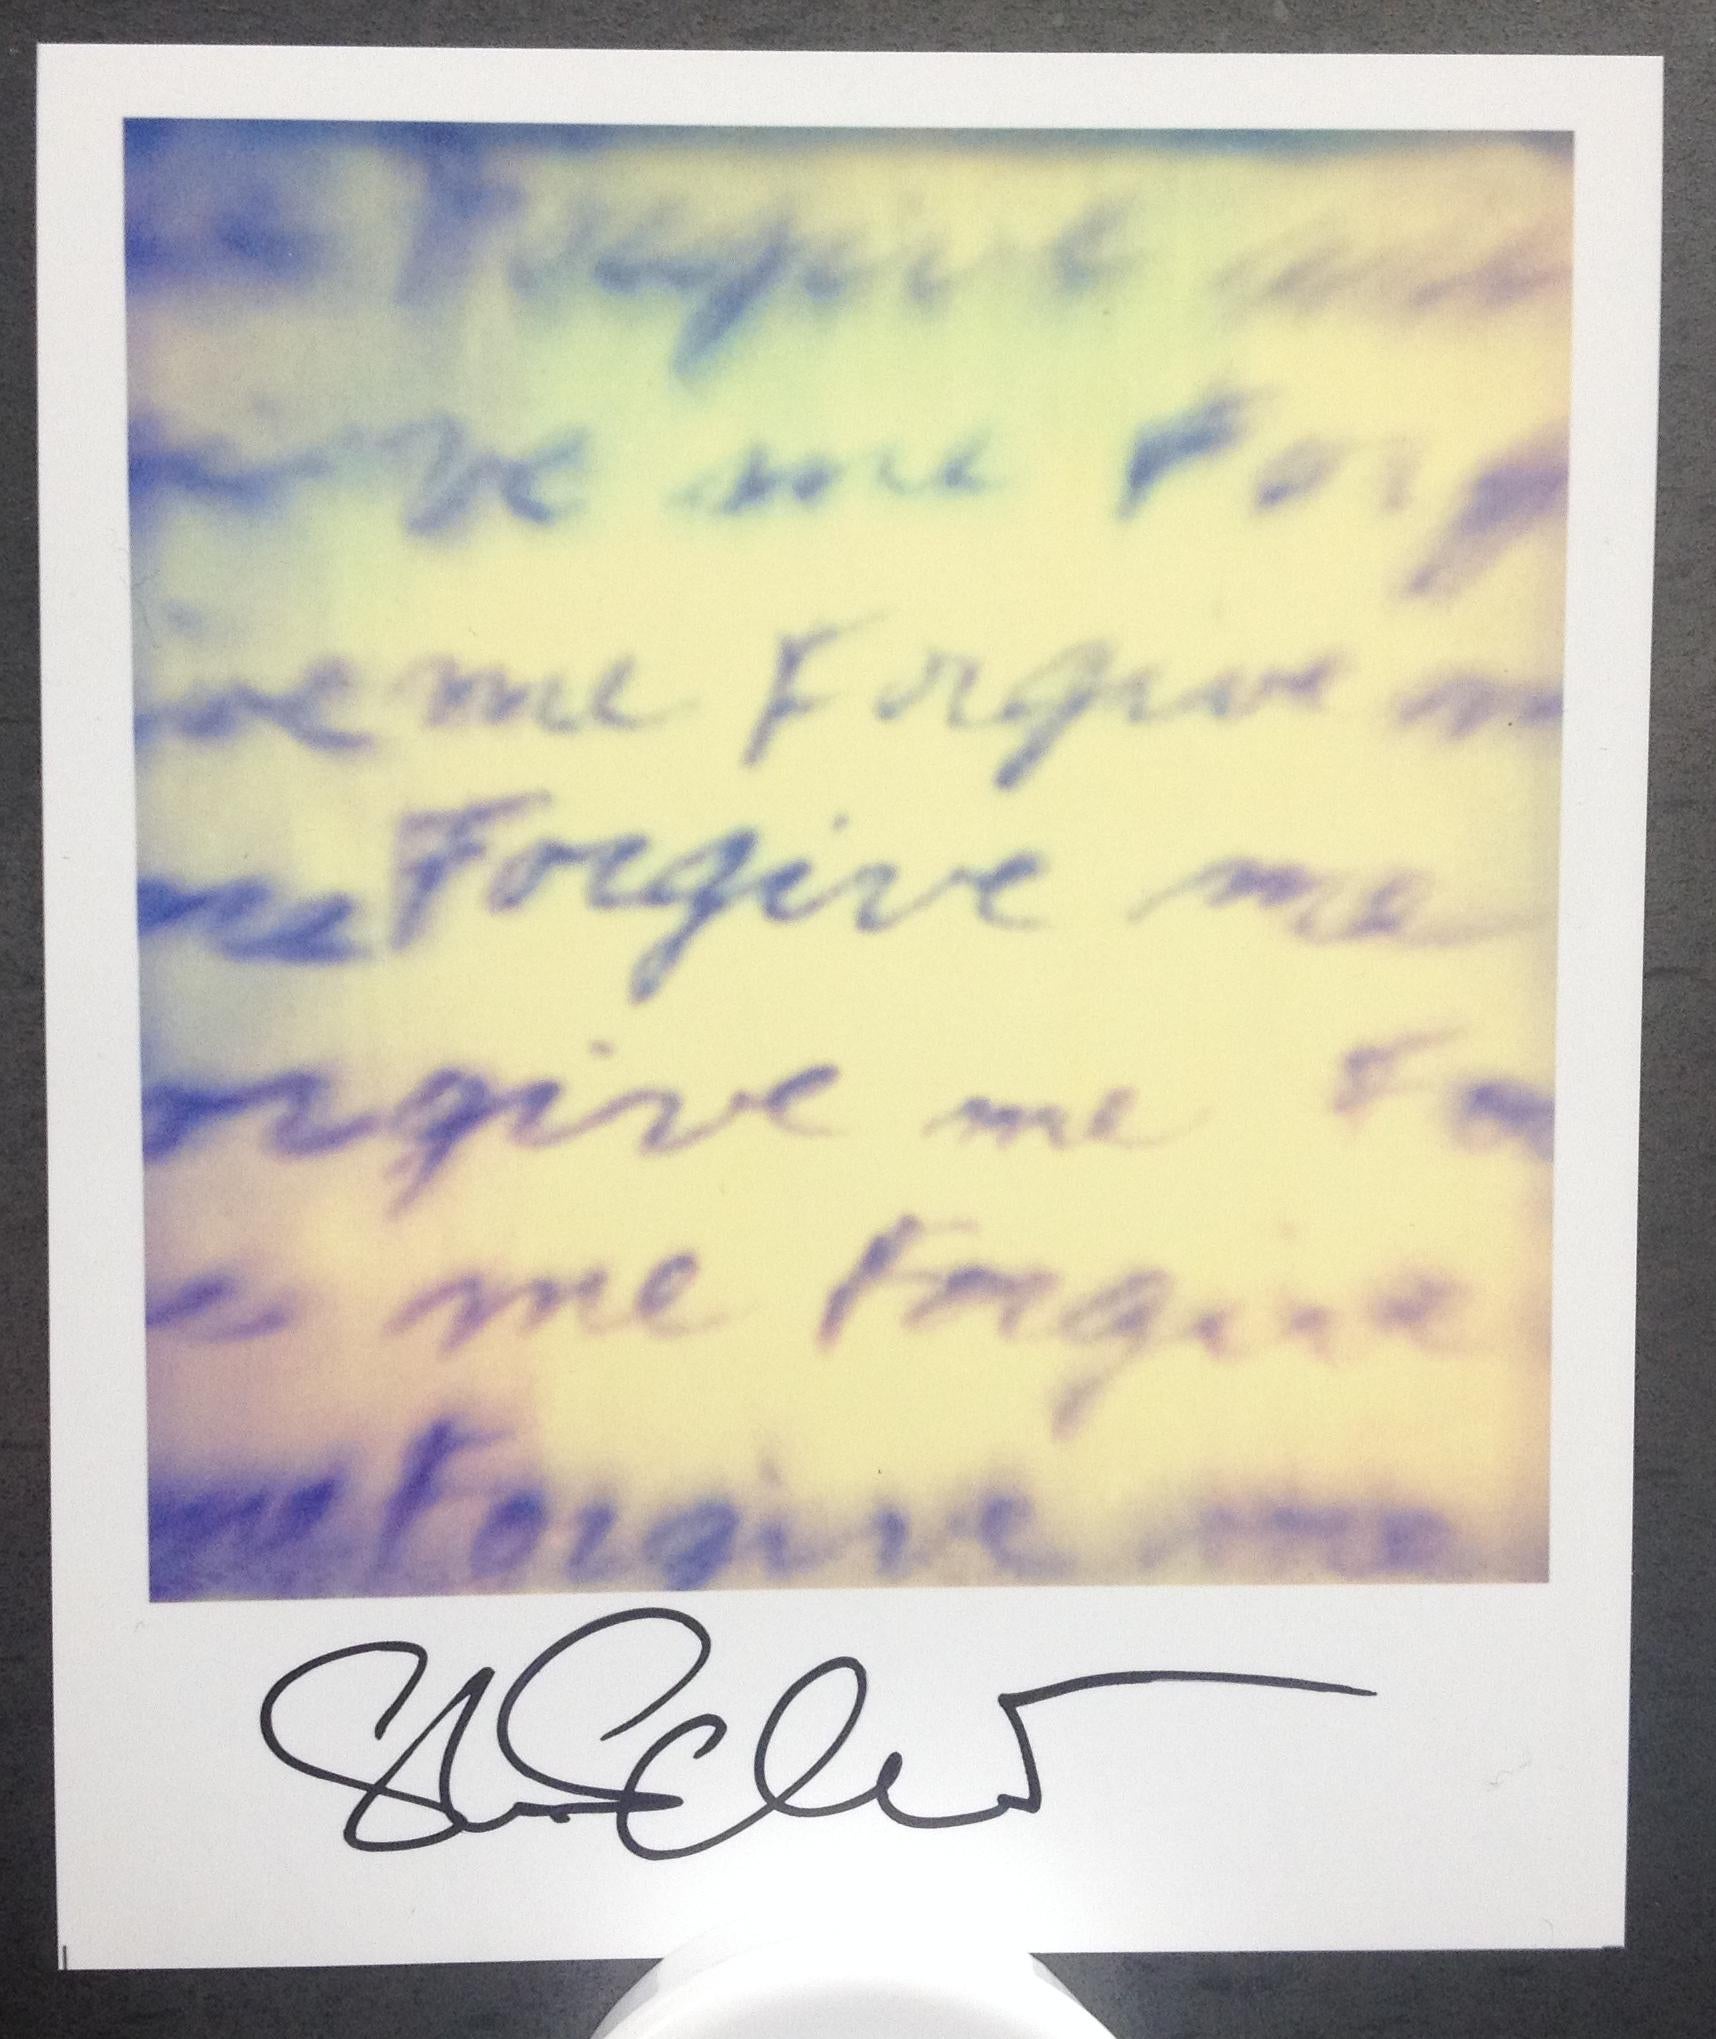 Forgive me
ve me Forg
ive me Forgive m
me Forgive me
orgive me Fo
e me Forgive
me Forgive me